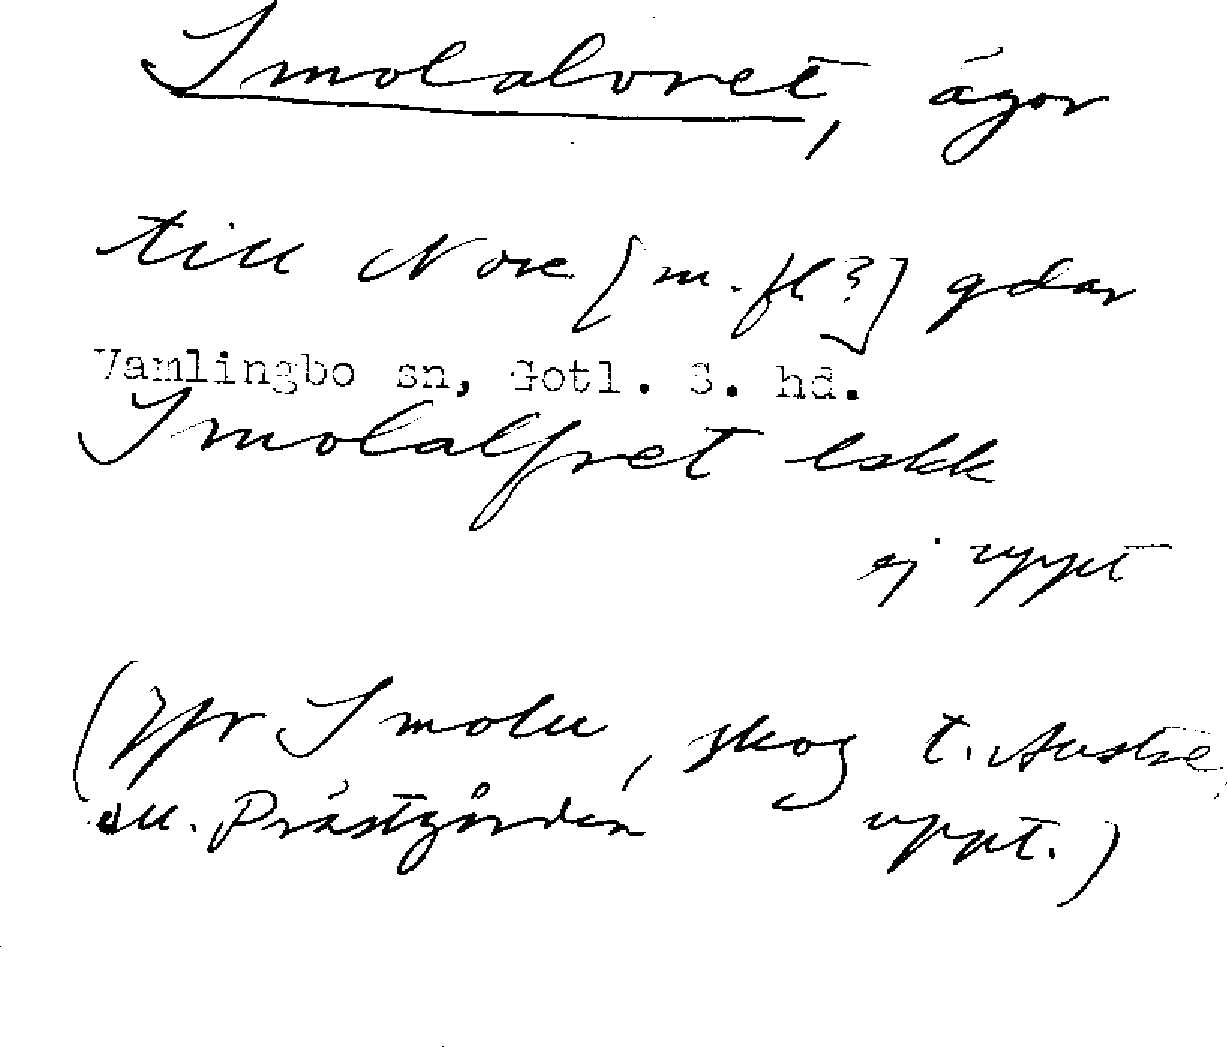 Smolalvret, ägor
till Nore [m. fl?] gdar
Vamlingbo sn, Gotl. S. hd.
Smolalfret
ej uppt
(Jfr Smolu, skog t. Austre,
ell. Prästgården uppt.)